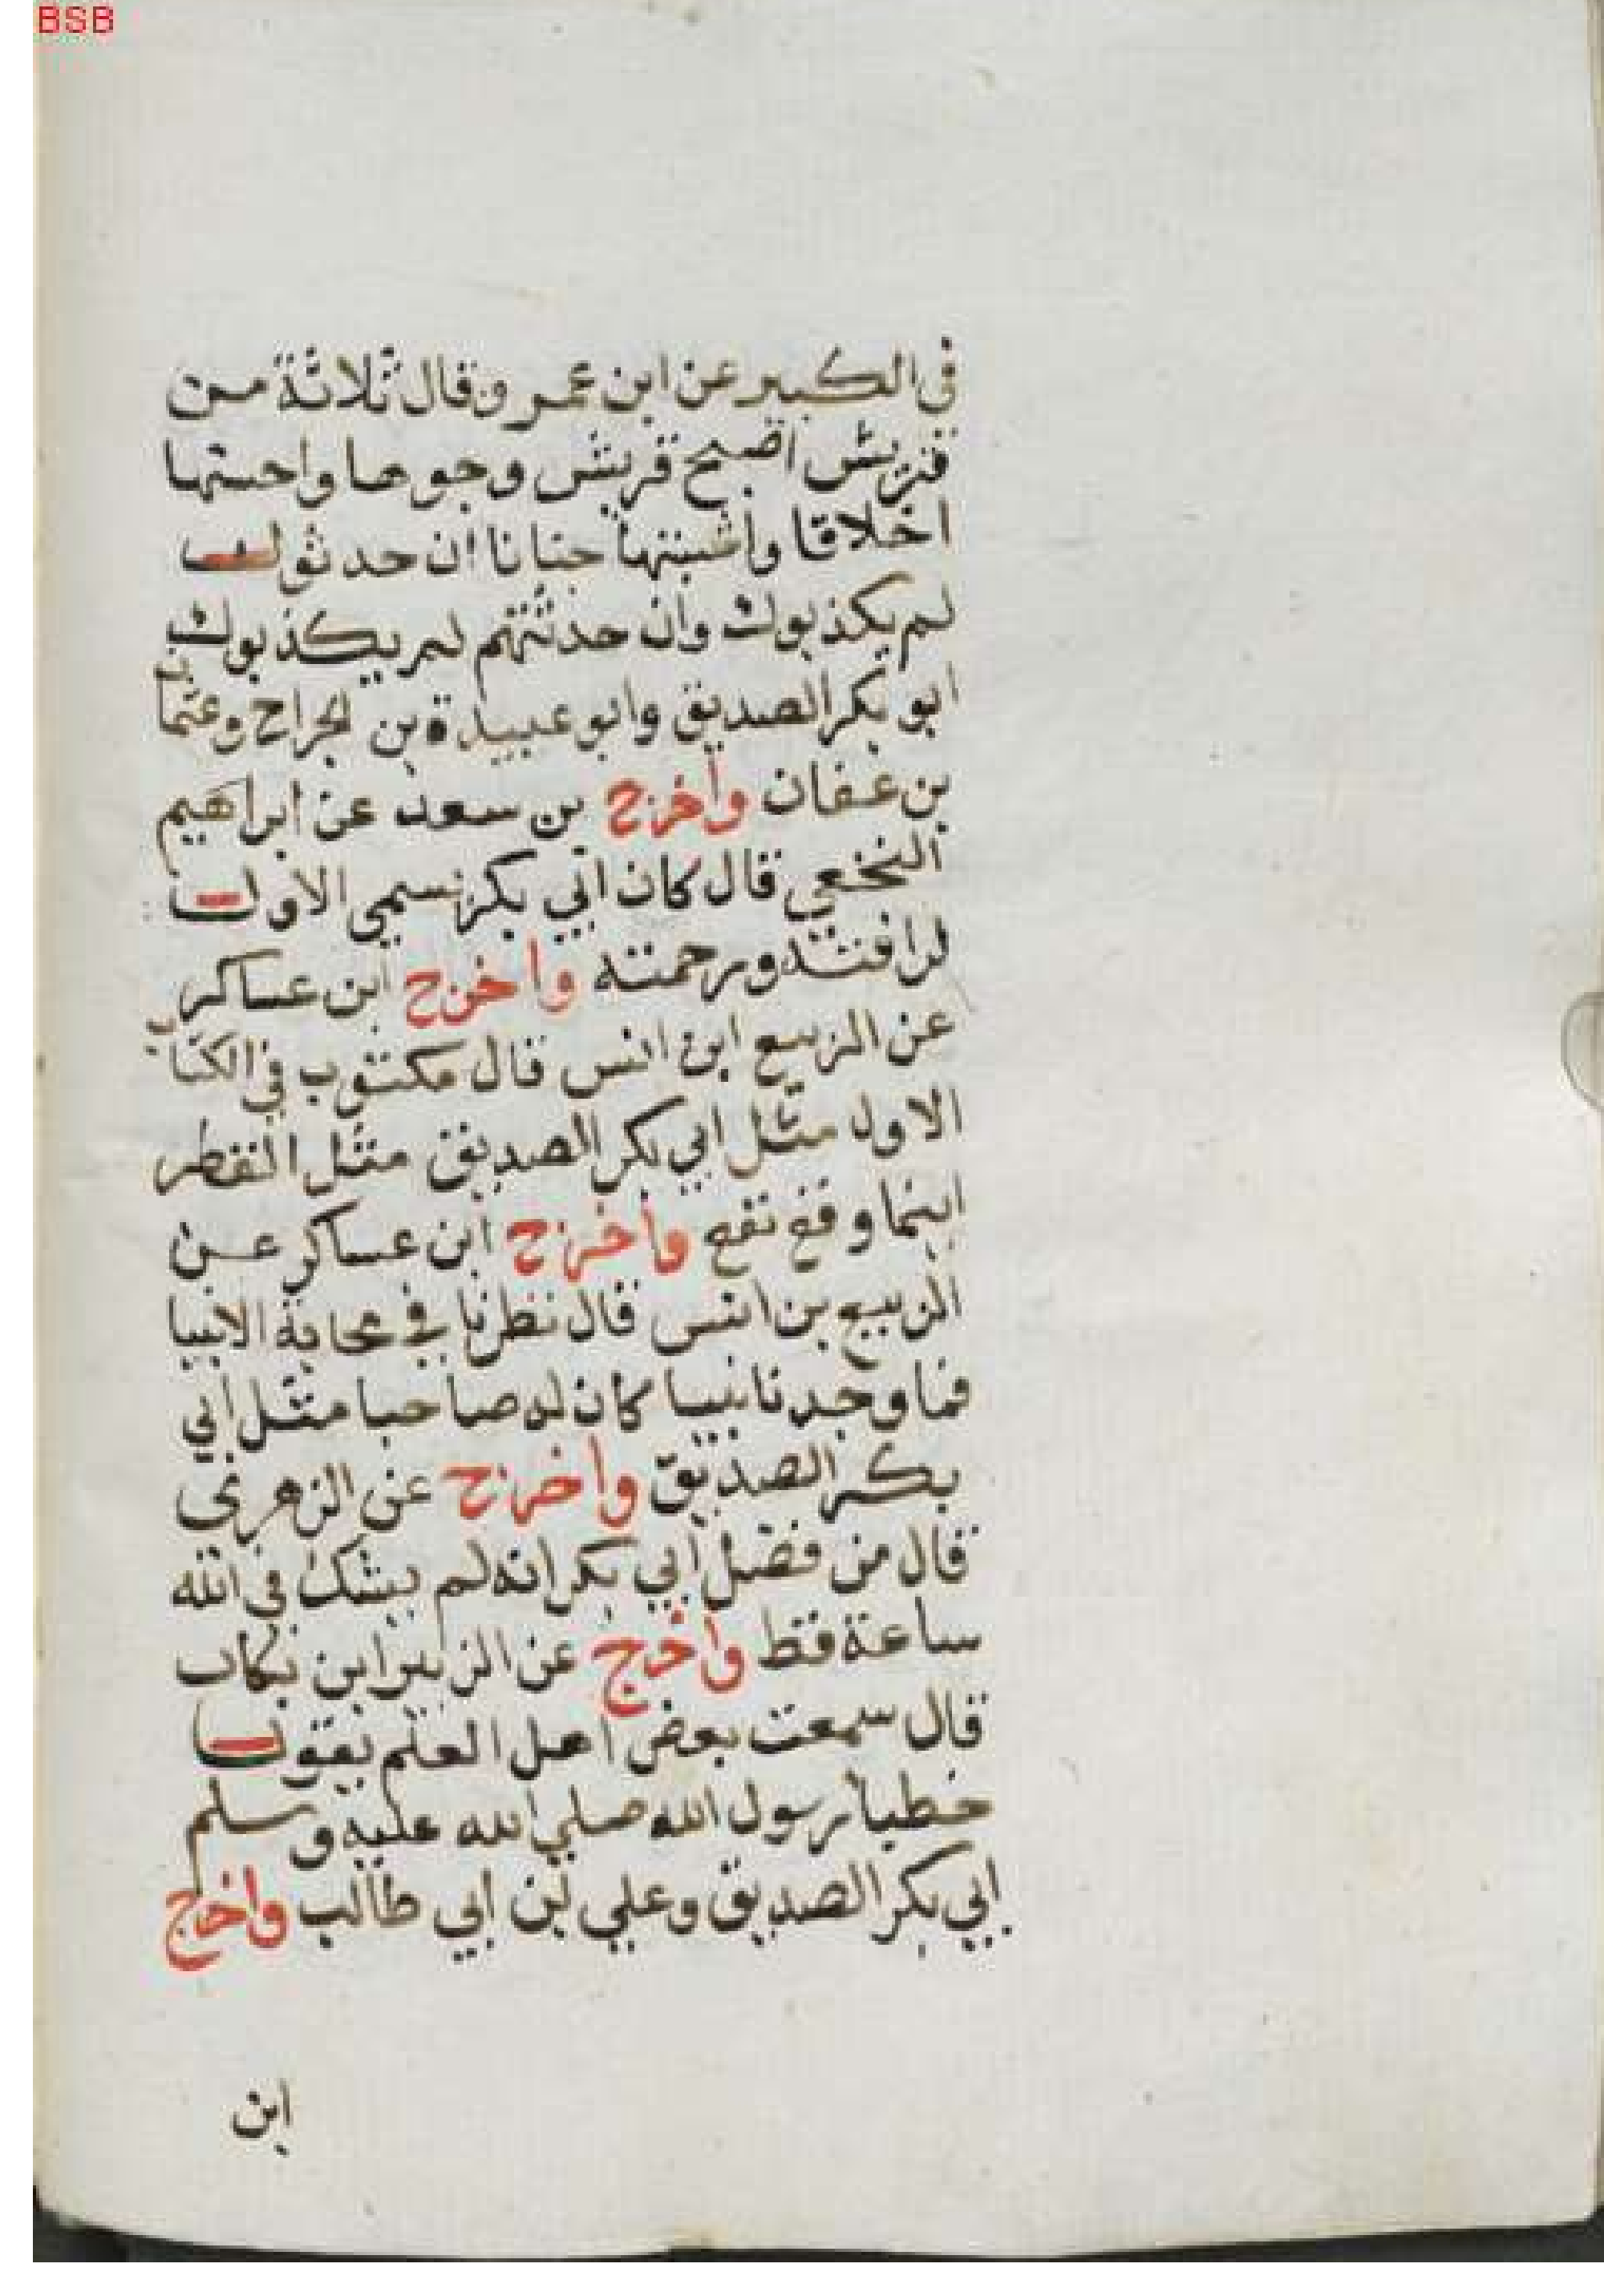 BSB
في الكبير عن ابن عمر وقال ثلاثة من
قريش اصبح قريش وجوها واحسنها
اخلاقا واثبتها جنانا ان حدثوك
لم يكذبوك وان حدثتهم لم يكذبوك
ابو بكر الصديق وابو عبيدة بن الجراح وعثما
بن عفان واخرج بن سعد عن ابراهيم
النخعي قال كان ابي بكر نسمي الاول
ورحمته واخرج ابن عساكر
عن الربيع ابن انس قال مكتوب في الكتاب
الاول مثل ابي بكر الصديق مثل القطر
اينما وقع نفع واخرج ابن عساكر عن
الربيع بن انس قال نظرنا في صحابة الانبيا
فما وجدنا نبيا كان له صاحبا مثل ابي
بكر الصديق واخرج عن الزهري
قال من فضل ابي بكر انه لم يشك في الله
ساعة قط واخرج عن الزبير ابن بكاب
قال سمعت بعض اهل العلم يقول
خطبا رسول الله صلي الله عليه وسلم
ابي بكر الصديق وعلي بن ابي طالب واخرج
ابن